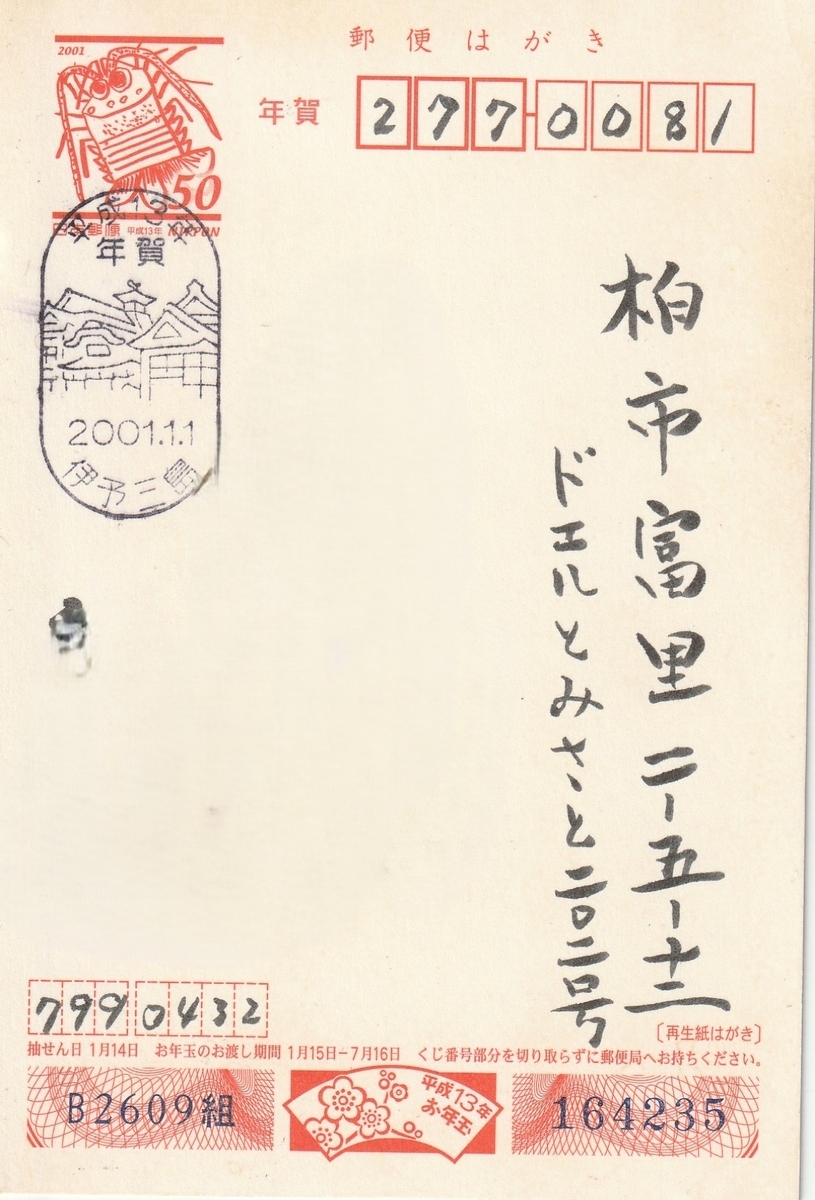 郵便はがき
2001
年賀
2770081
50
日本郵便 平成13年 NIPPON
平成13年
年賀
2001.1.1
伊予三島
柏市富里二-五-十二
ドエルとみさと二〇二号
7990432
〔再生紙はがき〕
抽せん日 1月14日 お年玉のお渡し期間 1月15日-7月16日 くじ番号部分を切り取らずに郵便局へお持ちください。
B2609組
平成13年
お年玉
164235